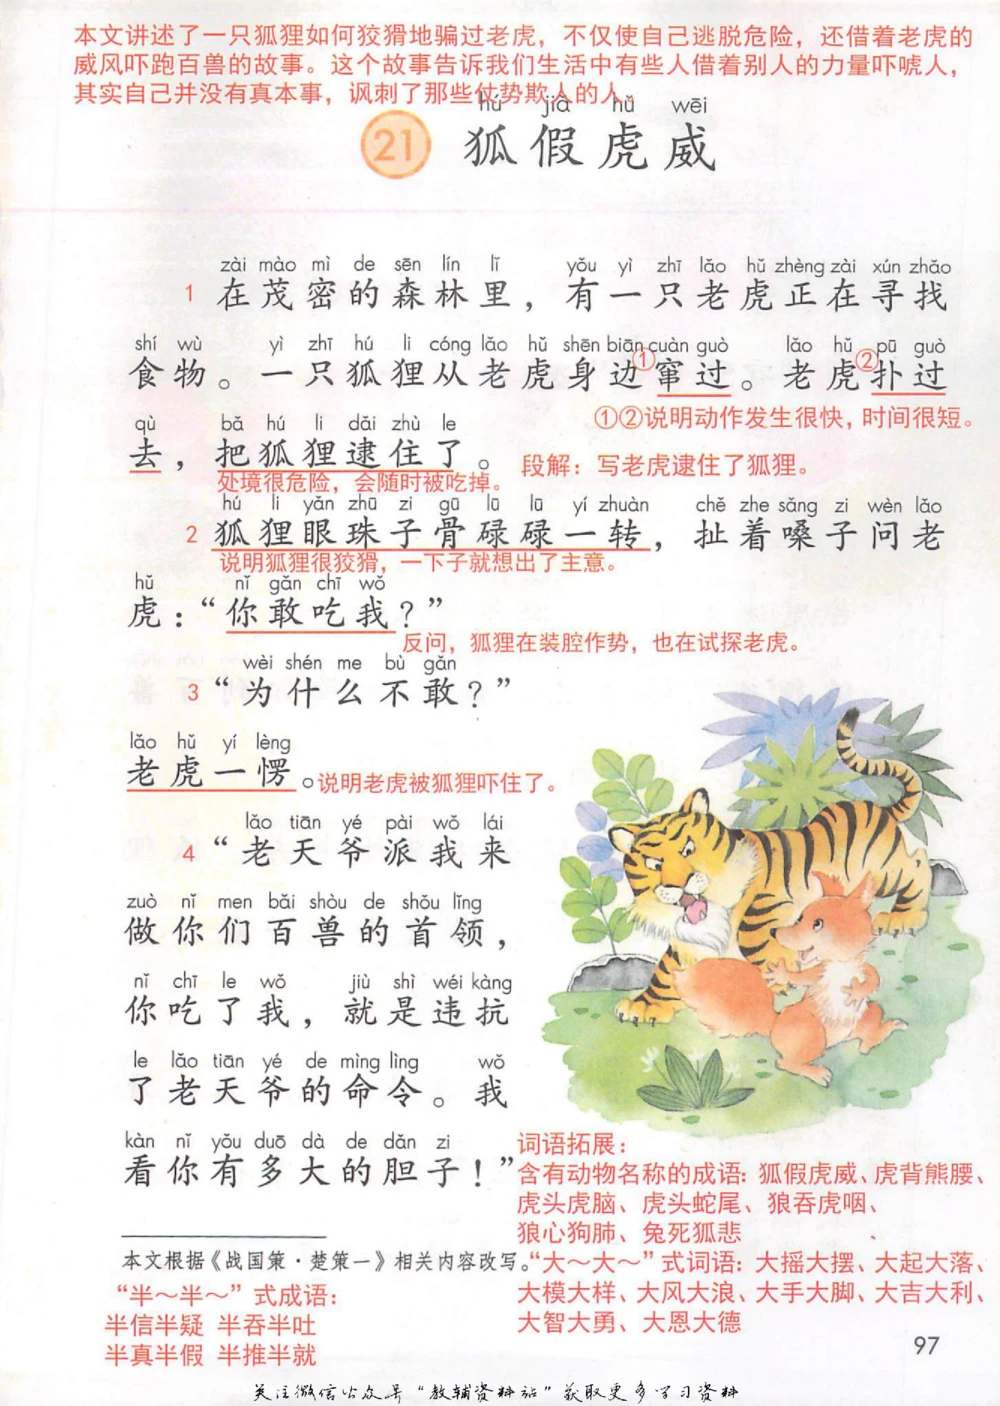 本文讲述了一只狐狸如何狡猾地骗过老虎，不仅使自己逃脱危险，还借着老虎的
威风吓跑百兽的故事。这个故事告诉我们生活中有些人借着别人的力量吓唬人，
其实自己并没有真本事，讽刺了那些仗势欺人的人。
hú jiǎ hǔ wēi
21 狐假虎威
zài mào mì de sēn lín lǐ yǒu yì zhī lǎo hǔ zhèng zài xún zhǎo
1 在茂密的森林里，有一只老虎正在寻找
shí wù yì zhī hú li cóng lǎo hǔ shēn biān cuàn guò lǎo hǔ pū guò
食物。一只狐狸从老虎身边①窜过。老虎②扑过
①②说明动作发生很快，时间很短。
qù bǎ hú li dǎi zhù le
去，把狐狸逮住了。 段解：写老虎逮住了狐狸。
处境很危险，会随时被吃掉。
hú li yǎn zhū zi gū lū lū yí zhuàn chě zhe sǎng zi wèn lǎo
2 狐狸眼珠子骨碌碌一转，扯着嗓子问老
说明狐狸很狡猾，一下子就想出了主意。
hǔ nǐ gǎn chī wǒ
虎：“你敢吃我？”
反问，狐狸在装腔作势，也在试探老虎。
wèi shén me bù gǎn
3 “为什么不敢？”
lǎo hǔ yí lèng
老虎一愣。说明老虎被狐狸吓住了。
lǎo tiān yé pài wǒ lái
4 “老天爷派我来
zuò nǐ men bǎi shòu de shǒu lǐng
做你们百兽的首领，
nǐ chī le wǒ jiù shì wéi kàng
你吃了我，就是违抗
le lǎo tiān yé de mìng lìng wǒ
了老天爷的命令。我
kàn nǐ yǒu duō dà de dǎn zi
看你有多大的胆子！”
词语拓展：
含有动物名称的成语：狐假虎威、虎背熊腰、
虎头虎脑、虎头蛇尾、狼吞虎咽、
狼心狗肺、兔死狐悲
“大～大～”式词语：大摇大摆、大起大落、
大模大样、大风大浪、大手大脚、大吉大利、
大智大勇、大恩大德
本文根据《战国策·楚策一》相关内容改写。
“半～半～”式成语：
半信半疑 半吞半吐
半真半假 半推半就
97
关注微信公众号“教辅资料站”获取更多学习资料